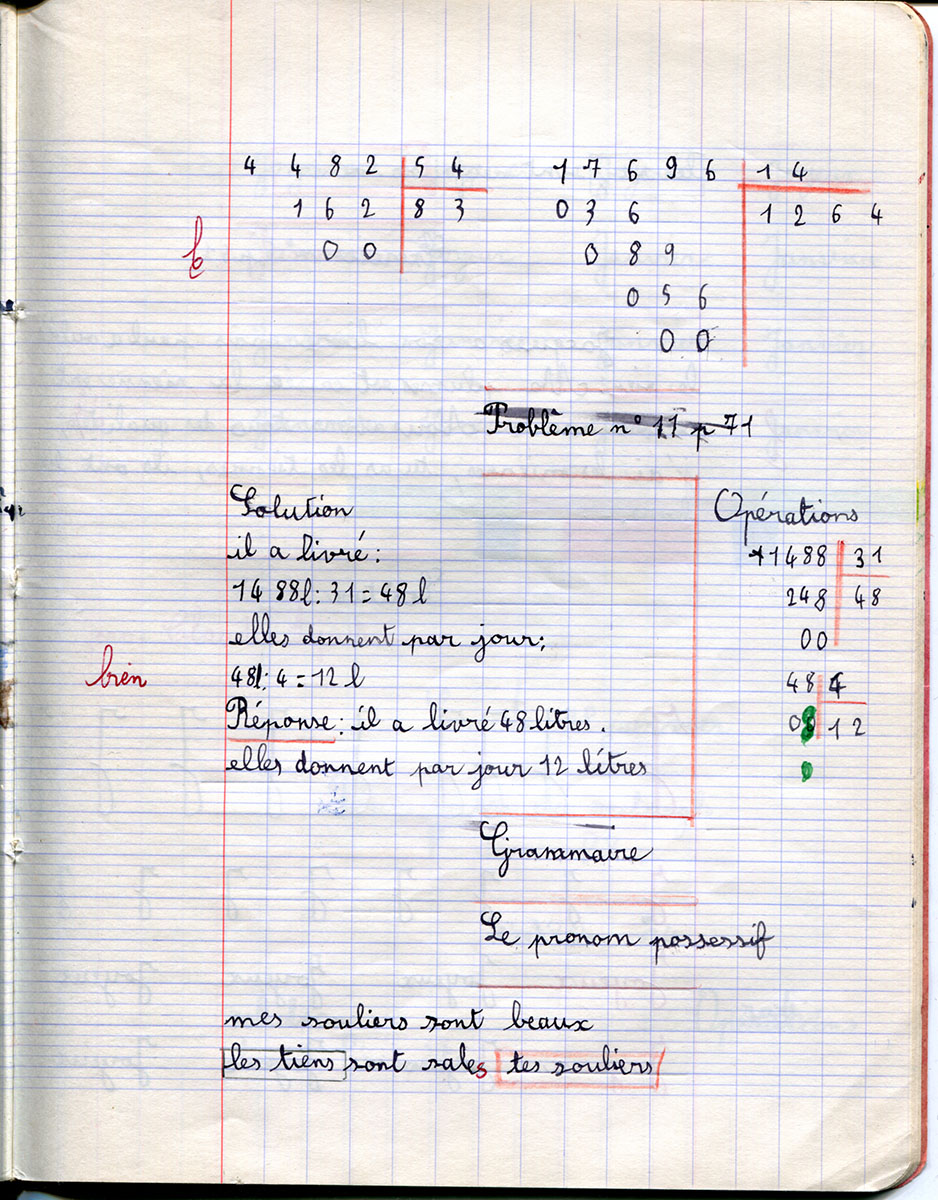 4 4 8 2 5 4
1 6 2 8 3
0 0
1 7 6 9 6 1 4
0 3 6 1 2 6 4
0 8 9
0 5 6
0 0
Problème n° 11 p 71
Solution
il a livré :
1488l : 31 = 48 l
elles donnent par jour ;
48l : 4 = 12 l
bien
Réponse : il a livré 48 litres .
elles donnent par jour 12 litres
Opérations
1488 31
248 48
00
48 4
08 12
0
Grammaire
Le pronom possessif
mes souliers sont beaux
les tiens sont sales tes souliers